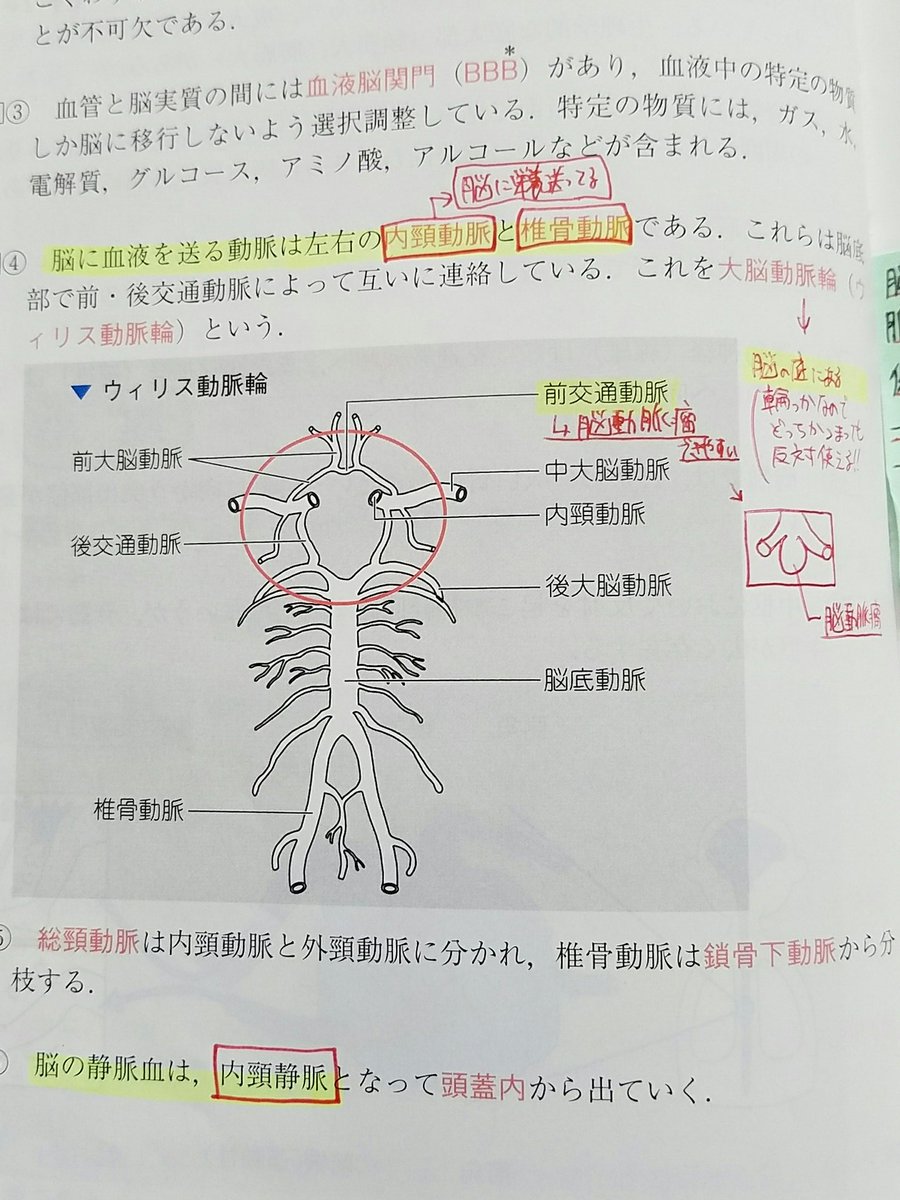 とが不可欠である.
③ 血管と脳実質の間には血液脳関門（BBB*）があり，血液中の特定の物質
しか脳に移行しないよう選択調整している．特定の物質には，ガス，水，
電解質，グルコース，アミノ酸，アルコールなどが含まれる．
脳に栄養送ってる
④ 脳に血液を送る動脈は左右の内頸動脈と椎骨動脈である．これらは脳底
部で前・後交通動脈によって互いに連絡している．これを大脳動脈輪（ウ
ィリス動脈輪）という．
▼ ウィリス動脈輪
前交通動脈
↳ 脳動脈瘤
できやすい
前大脳動脈
中大脳動脈
内頸動脈
後交通動脈
後大脳動脈
脳底動脈
椎骨動脈
脳の底にある
輪っかなので
どっちかつまっても
反対使える!!
脳動脈瘤
総頸動脈は内頸動脈と外頸動脈に分かれ，椎骨動脈は鎖骨下動脈から分
枝する．
脳の静脈血は，内頸静脈となって頭蓋内から出ていく．